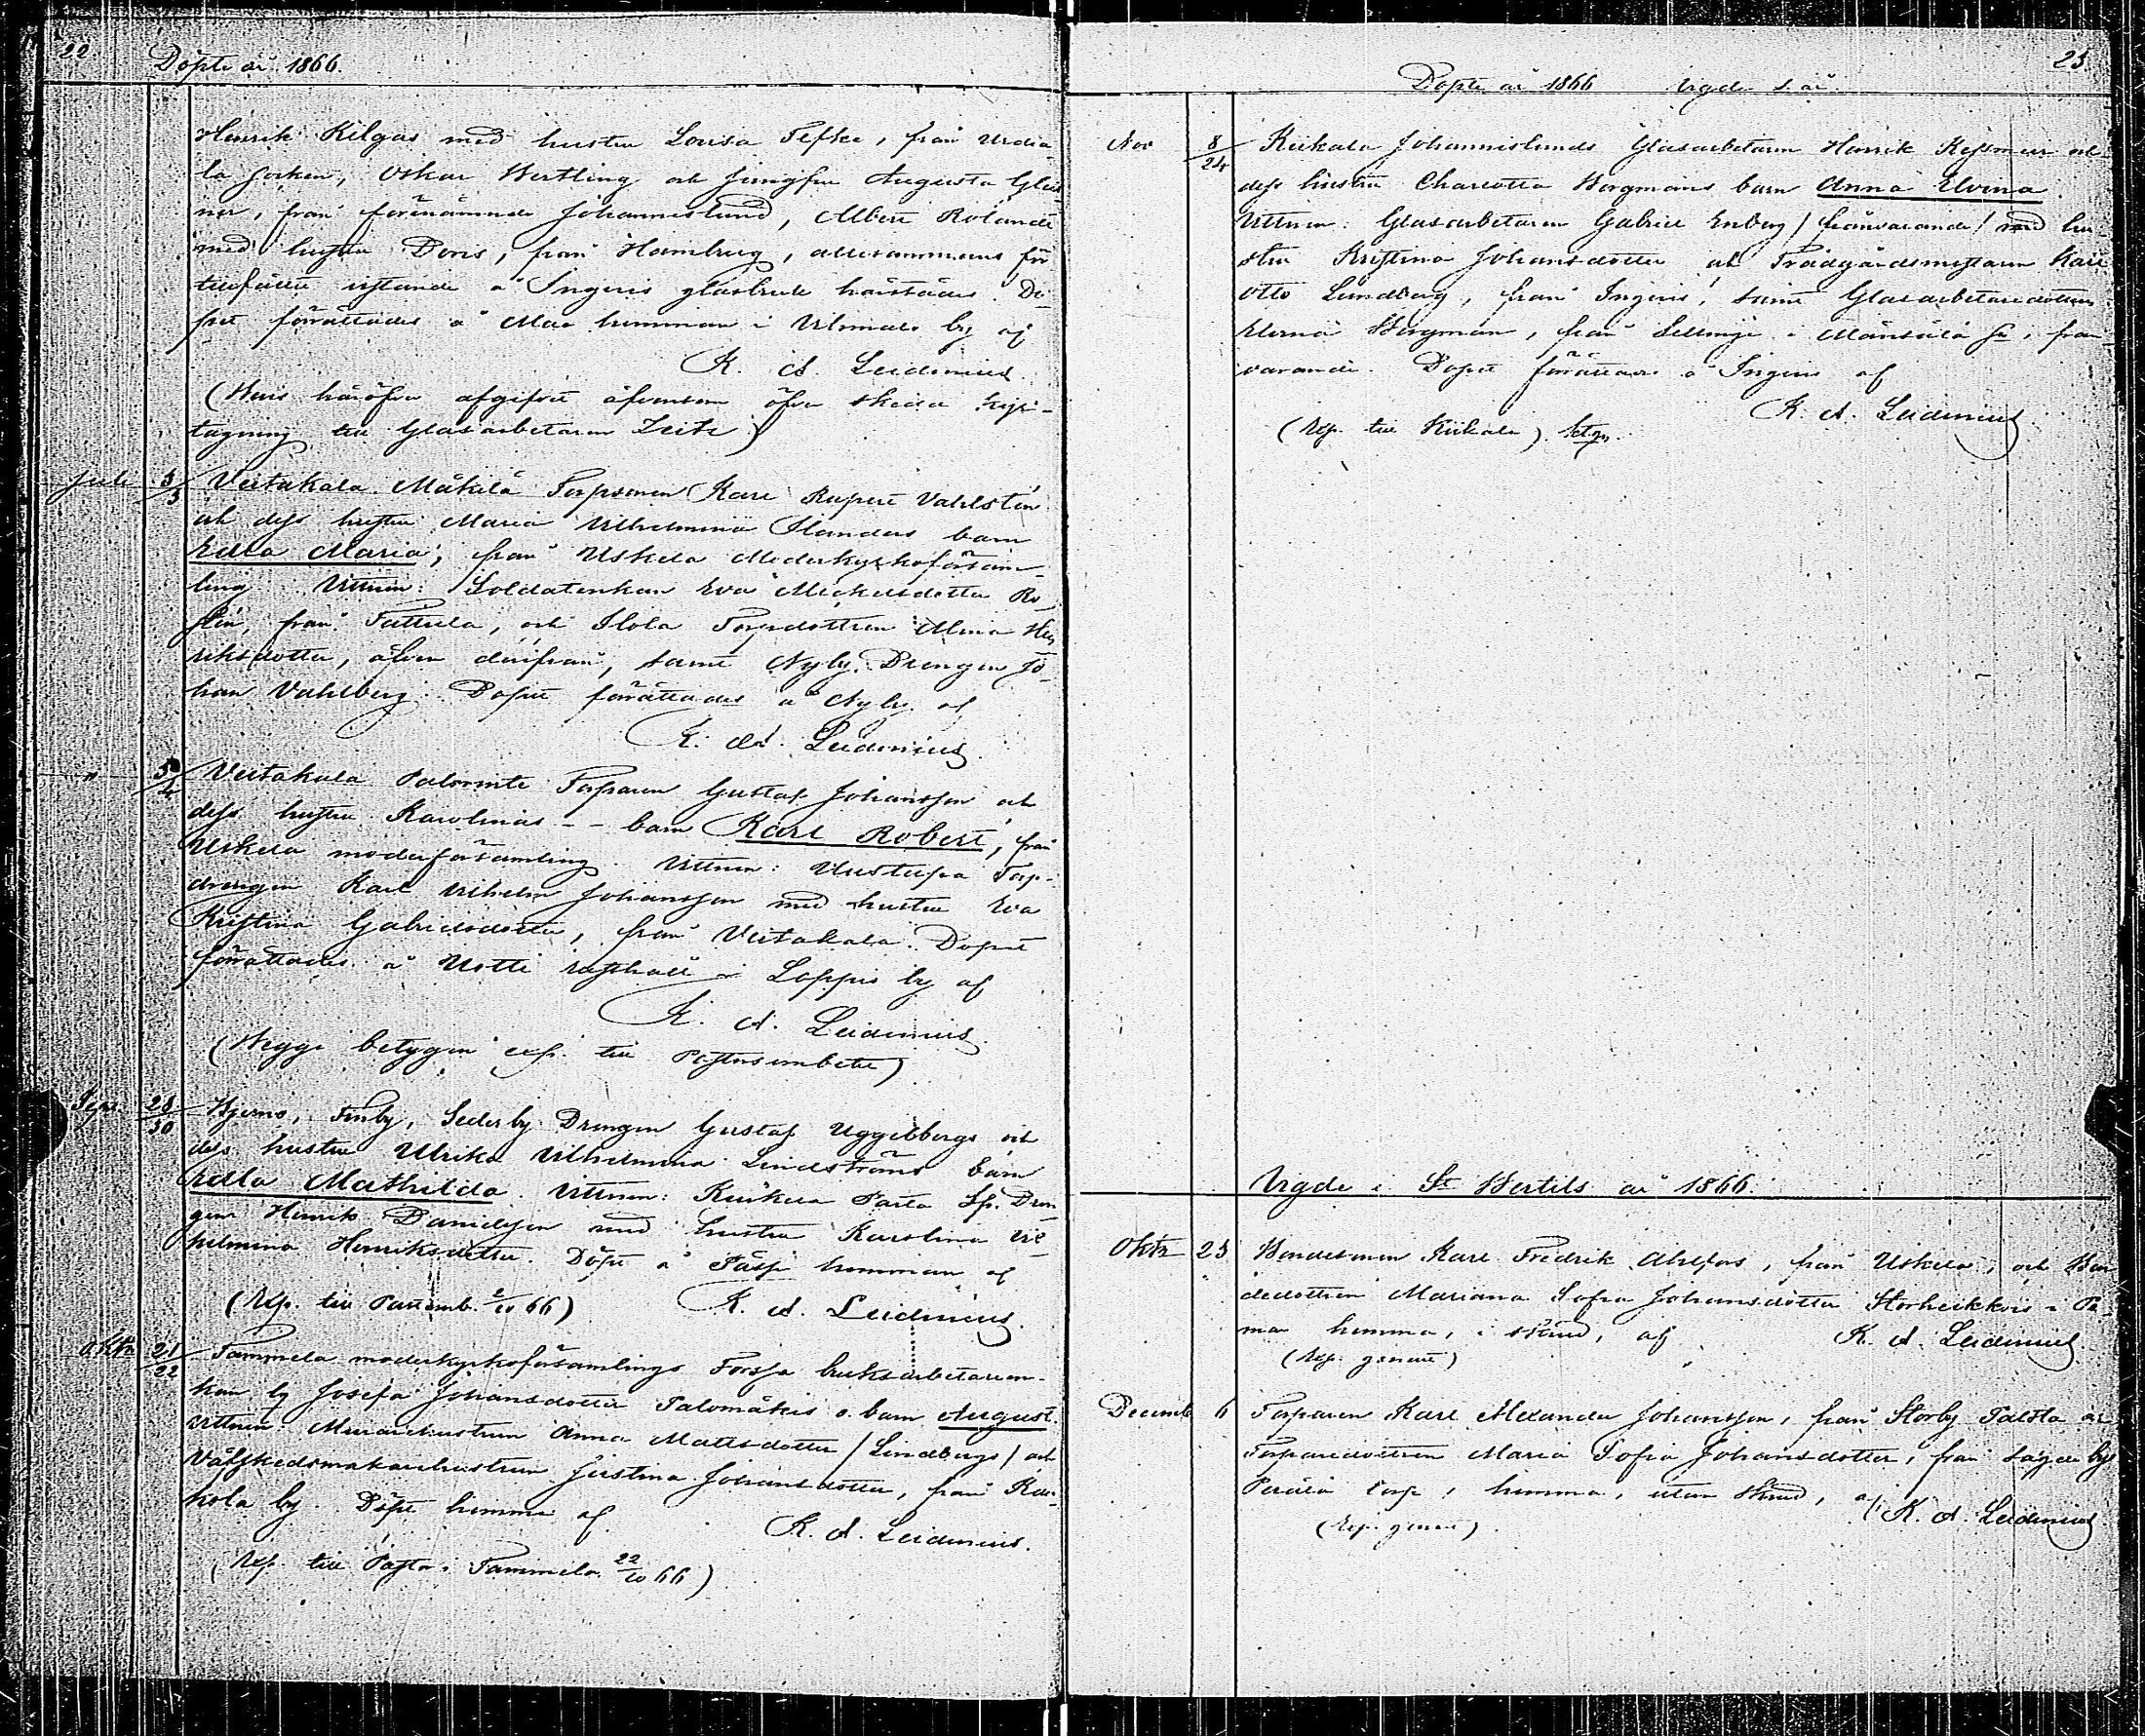 22
Döpte år 1866.
Henrik Kilgas med hustru Lovisa Tefke, från Urdia-
la socken, Oskar Wertling och Jungfru Augusta Glas
ner, från förenämnde Johannislund, Albert Rolandt
med hustru Doris, från Hamburg, allesammans för
tillfället vistande å Ingeris glasbruk härstädes. Do-
pet förrättades å Maa hemman i Vilmala by af
K. A. Leidenius.
(Bevis häröfver afgifvet äfvensom öfver skedd kyrk-
tagning till Glasarbetaren Zeitz)
Juli 3/3 Veitakala Mäkilä Torpsonen Karl Rupert Vahlstén
och dess hustru Maria Vilhelmina Ilanders barn
Edla Maria, från Uskela Moderkyrkoförsam-
ling. Vittnen: Soldatenkan Eva Mickelsdotter Ro-
slin, från Pattula, och Ilola Torpdottren Alma Hen
riksdotter, äfven därifrån, samt Nyby Drengen Jo-
han Vahlberg. Dopet förrättades å Nyby af
K. A. Leidenius.
" 3/4 Veitakala Palomite Torparen Gustaf Johansson och
dess hustru Karolinas - - barn Karl Robert, från
Uskela moderförsamling. Vittnen: Uustupa Torp-
drengen Karl Vilhelm Johansson med hustru Eva
Kristina Gabrielsdotter, från Veitakala. Dopet
förrättades å Uotti rusthåll i Loppis by af
K. A. Leidenius.
(Begge betygen exp. till Pastorsembetet)
Sept. 28/30 Bjerno, Finby, Sederby Drengen Gustaf Uggelbergs och
dess hustru Ulrika Vilhelmina Lindströms barn
Edla Mathilda. Vittnen: Kuukala Parta Sp. Dren
gen Henrik Danielsson med hustru Karolina Vil-
helmina Henriksdotter. Döpt å Pässi hemman af
(Exp. till Past.emb. 2/10 66) K. A. Leidenius.
Oktr 21/22 Tammela moderkyrkoförsamlings Forssa bruksarbetaren-
kan Josefa Johansdotter Palomäkis o. barn August.
Vittnen: Murarehustrun Anna Mattsdotter /Lindbergs/ och
Väfskedsmakarehustrun Justina Johansdotter, från Kar-
kola by. Döpt hemma af
K. A. Leidenius.
(Exp. till Pastor i Tammela 22/10 66)
23.
Döpte år 1866 Vigde s. år.
Nov 8/24 Kiikala Johannislunds Glasarbetaren Henrik Kessoners och
dess hustru Charlotta Bergmans barn Anna Elvina
Vittnen: Glasarbetaren Gabriel Enberg /frånvarande/ med hu-
stru Kristina Johansdotter och Trädgårdsmästaren Karl
Otto Lundberg, från Ingeris, samt Glasarbetaredottren
Elena Bergman, från Sellinge i Mäntsälä sn, från-
varande. Dopet förrättades å Ingeris af
K. A. Leidenius
(Exp. till Kiikala)
Vigde i St Bertils år 1866.
Oktr 23 Bondesonen Karl Fredrik Ahlfors, från Uskela, och Bon
dedottren Mariana Sofia Johansdotter Storheikkois i Pa-
mar hemma, i stånd, af K. A. Leidenius.
(Exp. genast)
Decemb 6 Torparen Karl Alexander Johansson, från Storby Palsta och
Torparedottren Maria Sofia Johansdotter, från sagde bys
Perälä torp, hemma, utan stånd, af K. A. Leidenius
(Exp. genast)